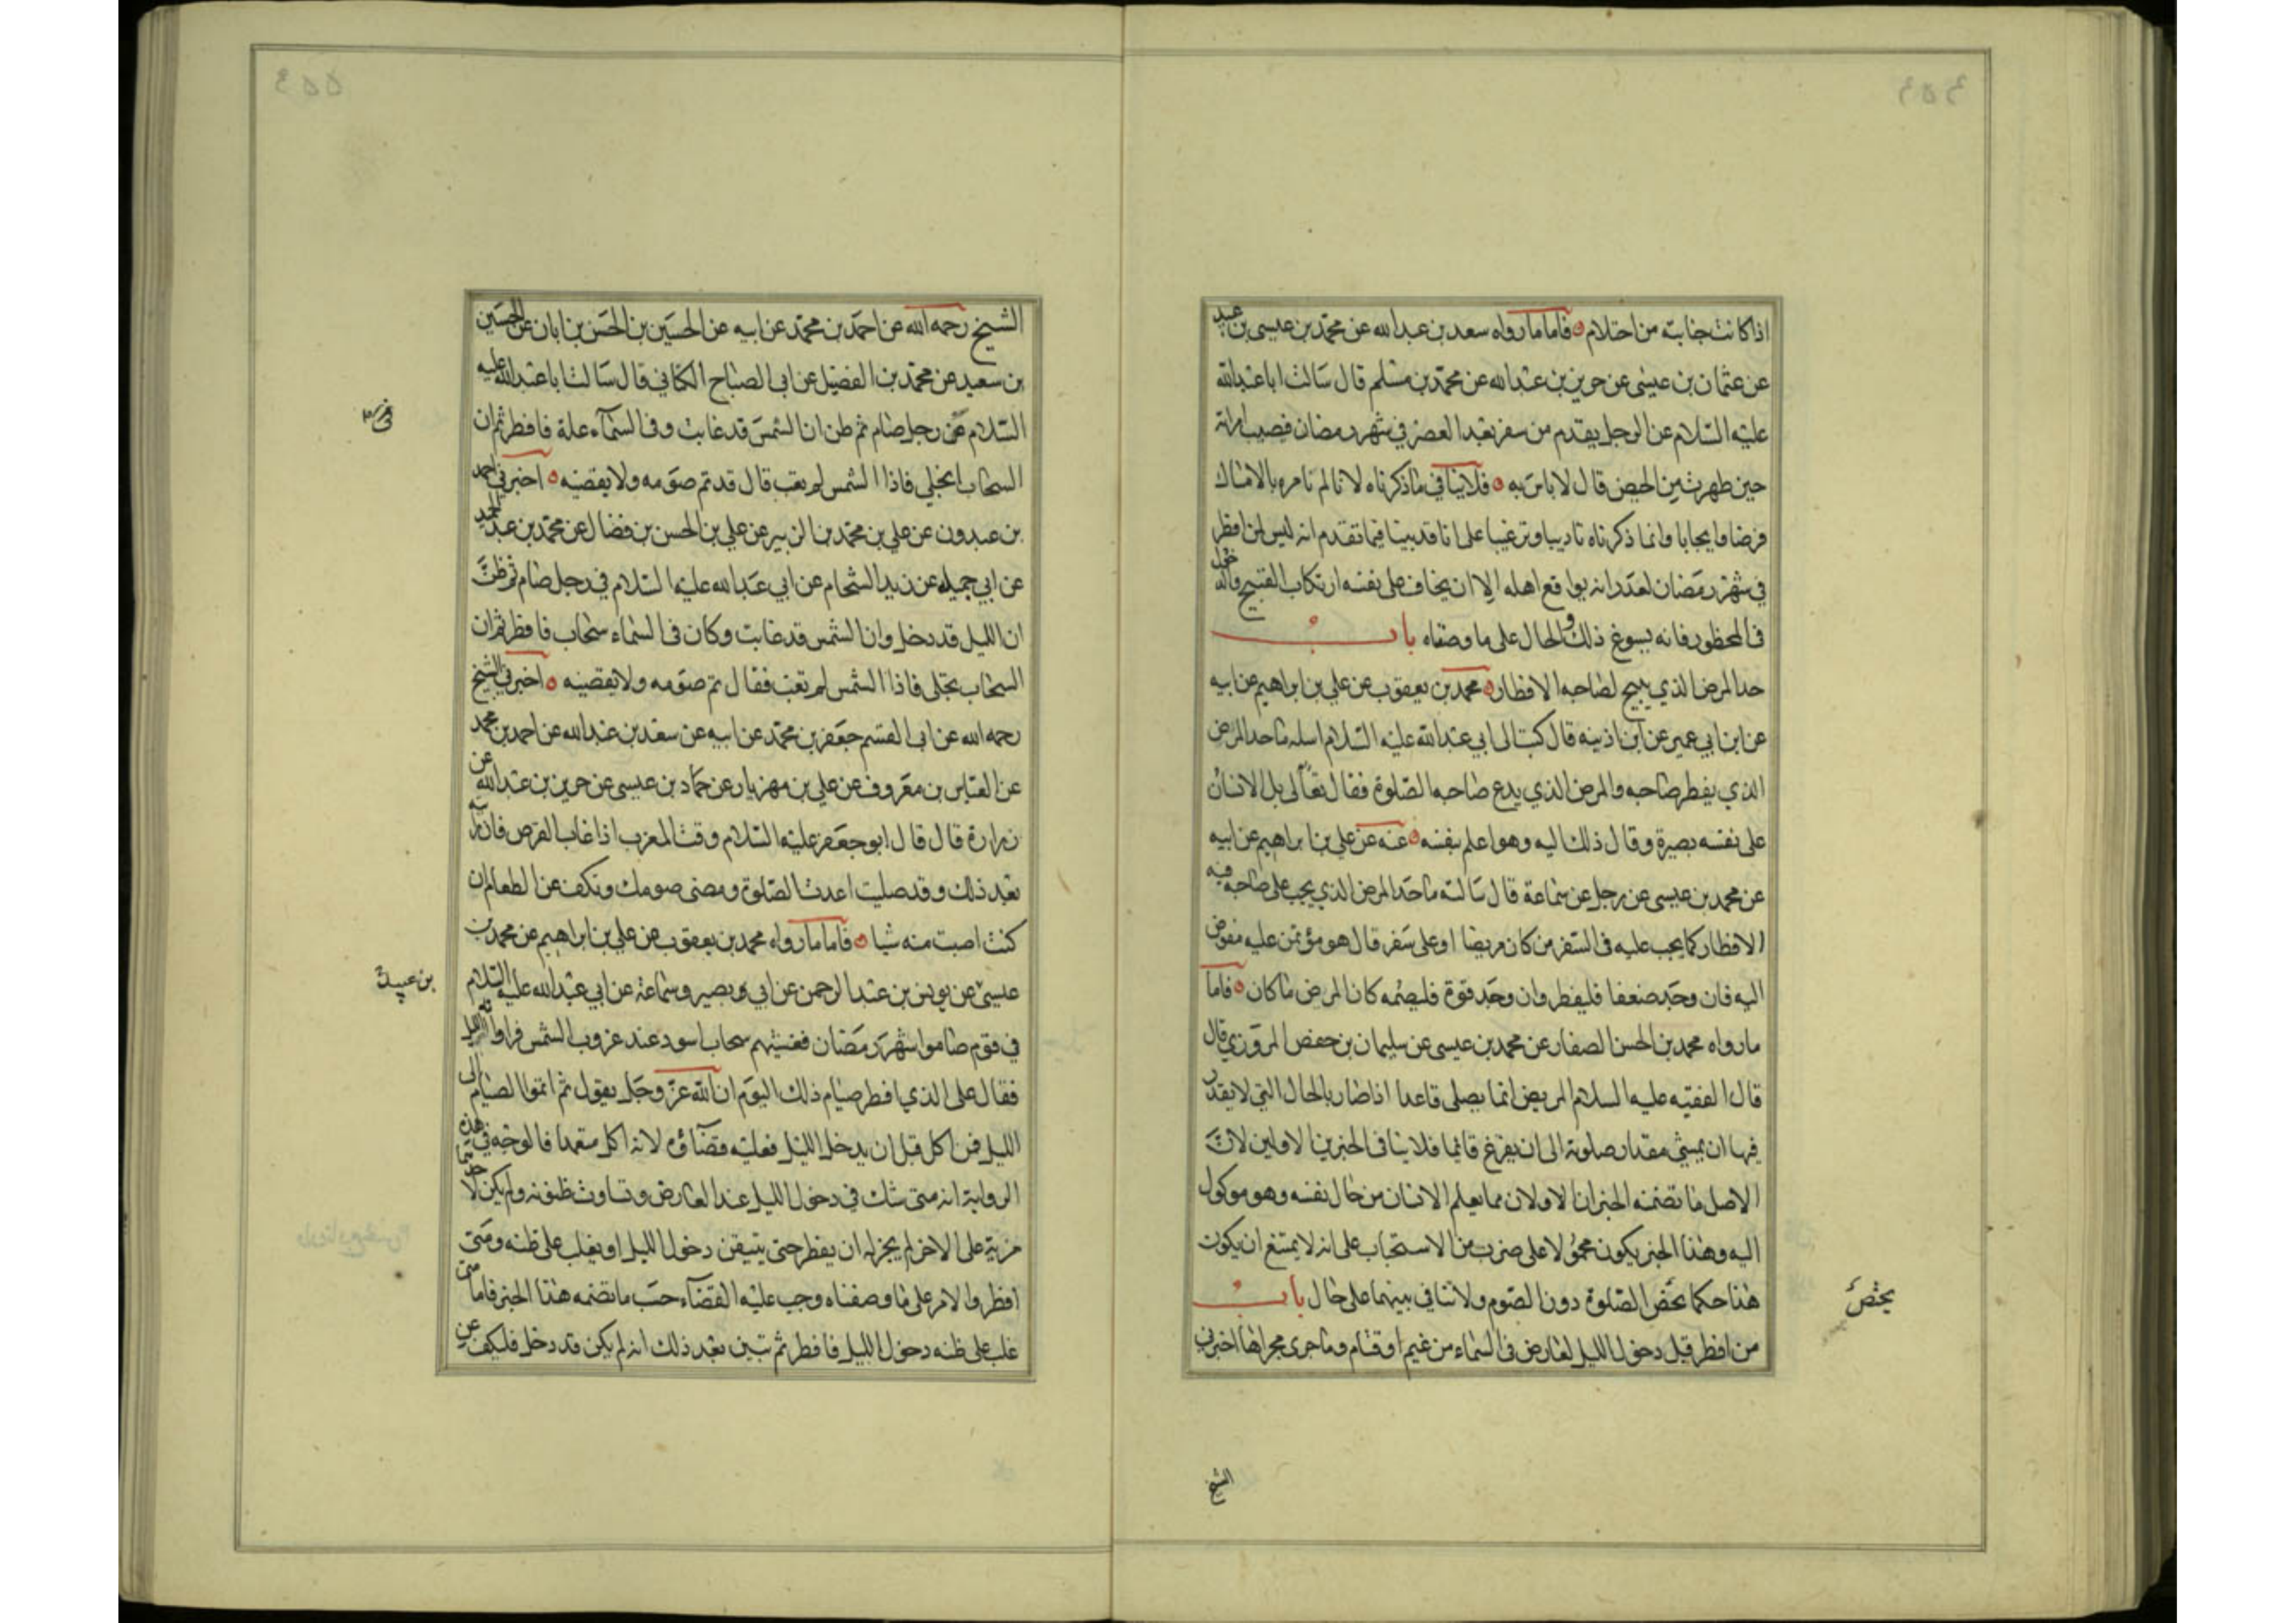 اذا كانت جنابته من احتلام فاما ما رواه سعد بن عبد الله عن محمد بن عيسى بن عبيد
عن عثمان بن عيسى عن حريز بن عبد الله عن محمد بن مسلم قال سالت ابا عبد الله
عليه السلام عن الرجل يقدم من سفر بعد العصر في شهر رمضان فيصيب امراته
حين طهرت من الحيض قال لا باس به فلا ينافي ما ذكرناه لانا لم نامره بالامساك
فرضا وايجابا وانما ذكرناه تاديبا وترغيبا على انا قد بينا فيما تقدم انه ليس لمن افطر
في شهر رمضان لعذر انه يواقع اهله الا ان يخاف على نفسه ارتكاب القبيح والدخول
في المحظور فانه يسوغ ذلك والحال على ما وصفناه باب
حد المرض الذي يبيح لصاحبه الافطار محمد بن يعقوب عن علي بن ابراهيم عن ابيه
عن ابن ابي عمير عن ابن اذينه قال كتبت الى ابي عبد الله عليه السلام اسله ما حد المرض
الذي يفطر صاحبه والمرض الذي يدع صاحبه الصلوة فقال تعالى بل الانسان
على نفسه بصيرة وقال ذلك اليه وهو اعلم بنفسه عنه عن علي بن ابراهيم عن ابيه
عن محمد بن عيسى عن رجل عن سماعة قال سالته ما حد المرض الذي يجب على صاحبه فيه
الافطار كما يجب عليه في السفر من كان مريضا او على سفر قال هو مؤتمن عليه مفوض
اليه فان وجد ضعفا فليفطر وان وجد قوة فليصمه كان المرض ما كان فاما
ما رواه محمد بن الحسن الصفار عن محمد بن عيسى عن سليمان بن حفص المروزي قال
قال الفقيه عليه السلام المريض انما يصلي قاعدا اذا صار بالحال التي لا يقدر
فيها ان يمشي مقدار صلوته الى ان يفرغ قائما فلا ينافي الخبرين الاولين لان
الاصل ما تضمنه الخبران الاولان مما يعلم الانسان من حال نفسه وهو موكول
اليه وهذا الخبر يكون محمولا على ضرب من الاستحباب على انه لا يمتنع ان يكون
هذا حكما يخص الصلوة دون الصوم ولا تنافي بينهما على حال باب
يختص
من افطر قبل دخول الليل لعارض في السماء من غيم او قتام وما جرى مجراها اخبرني
الشيخ
الشيخ رحمه الله عن احمد بن محمد عن ابيه عن الحسين بن الحسن بن ابان عن الحسين
بن سعيد عن محمد بن الفضيل عن ابي الصباح الكناني قال سالت ابا عبد الله عليه
السلام عن رجل صام ثم ظن ان الشمس قد غابت وفي السماء علة فافطر ثم ان
السحاب انجلي فاذا الشمس لم تغب قال قد تم صومه ولا يقضيه اخبرني احمد
بن عبدون عن علي بن محمد بن الزبير عن علي بن الحسن بن فضال عن محمد بن عبد الحميد
عن ابي جميله عن زيد الشحام عن ابي عبد الله عليه السلام في رجل صام ثم ظن
ان الليل قد دخل وان الشمس قد غابت وكان في السماء سحاب فافطر ثم ان
السحاب تجلى فاذا الشمس لم تغب فقال تم صومه ولا يقضيه اخبرني الشيخ
رحمه الله عن ابي القسم جعفر بن محمد عن ابيه عن سعد بن عبد الله عن احمد بن محمد
عن العباس بن معروف عن علي بن مهزيار عن حماد بن عيسى عن حريز بن عبد الله عن
زرارة قال قال ابو جعفر عليه السلام وقت المغرب اذا غاب القرص فان رايته
بعد ذلك وقد صليت اعدت الصلوة ومضى صومك وتكف عن الطعام ان
كنت اصبت منه شيا فاما ما رواه محمد بن يعقوب عن علي بن ابراهيم عن محمد بن
عيسى عن يونس بن عبد الرحمن عن ابي بصير وسماعة عن ابي عبد الله عليه السلام
بن عبيد
في قوم صاموا شهر رمضان فغشيهم سحاب اسود عند غروب الشمس فراوا انه الليل
فقال على الذي افطر صيام ذلك اليوم ان الله عز وجل يقول ثم اتموا الصيام الى
الليل فمن اكل قبل ان يدخل الليل فعليه قضاؤه لانه اكل متعمدا فالوجه في هذه
الرواية انه متى شك في دخول الليل عند العارض وتساوت ظنونه ولم يكن لاحدهما
مزية على الاخر لم يجز له ان يفطر حتى يتيقن دخول الليل او يغلب على ظنه ومتى
افطر والامر على ما وصفناه وجب عليه القضاء حسب ما تضمنه هذا الخبر فاما متى
غلب على ظنه دخول الليل فافطر ثم تبين بعد ذلك انه لم يكن قد دخل فليكف عن